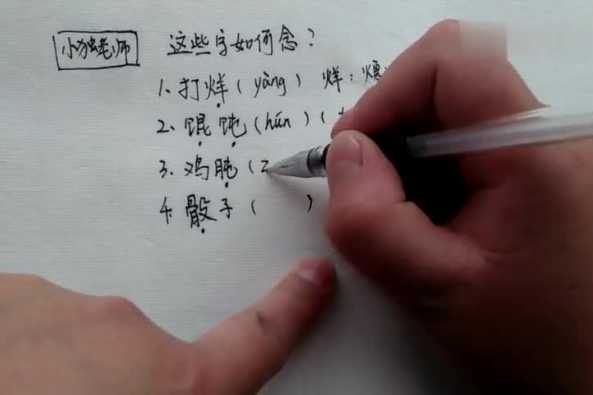 老师
这些字如何念？
1、打烊（yàng） 烊：
2、馄饨（hún）（
3、鸡肫（z
4、骰子（ ）